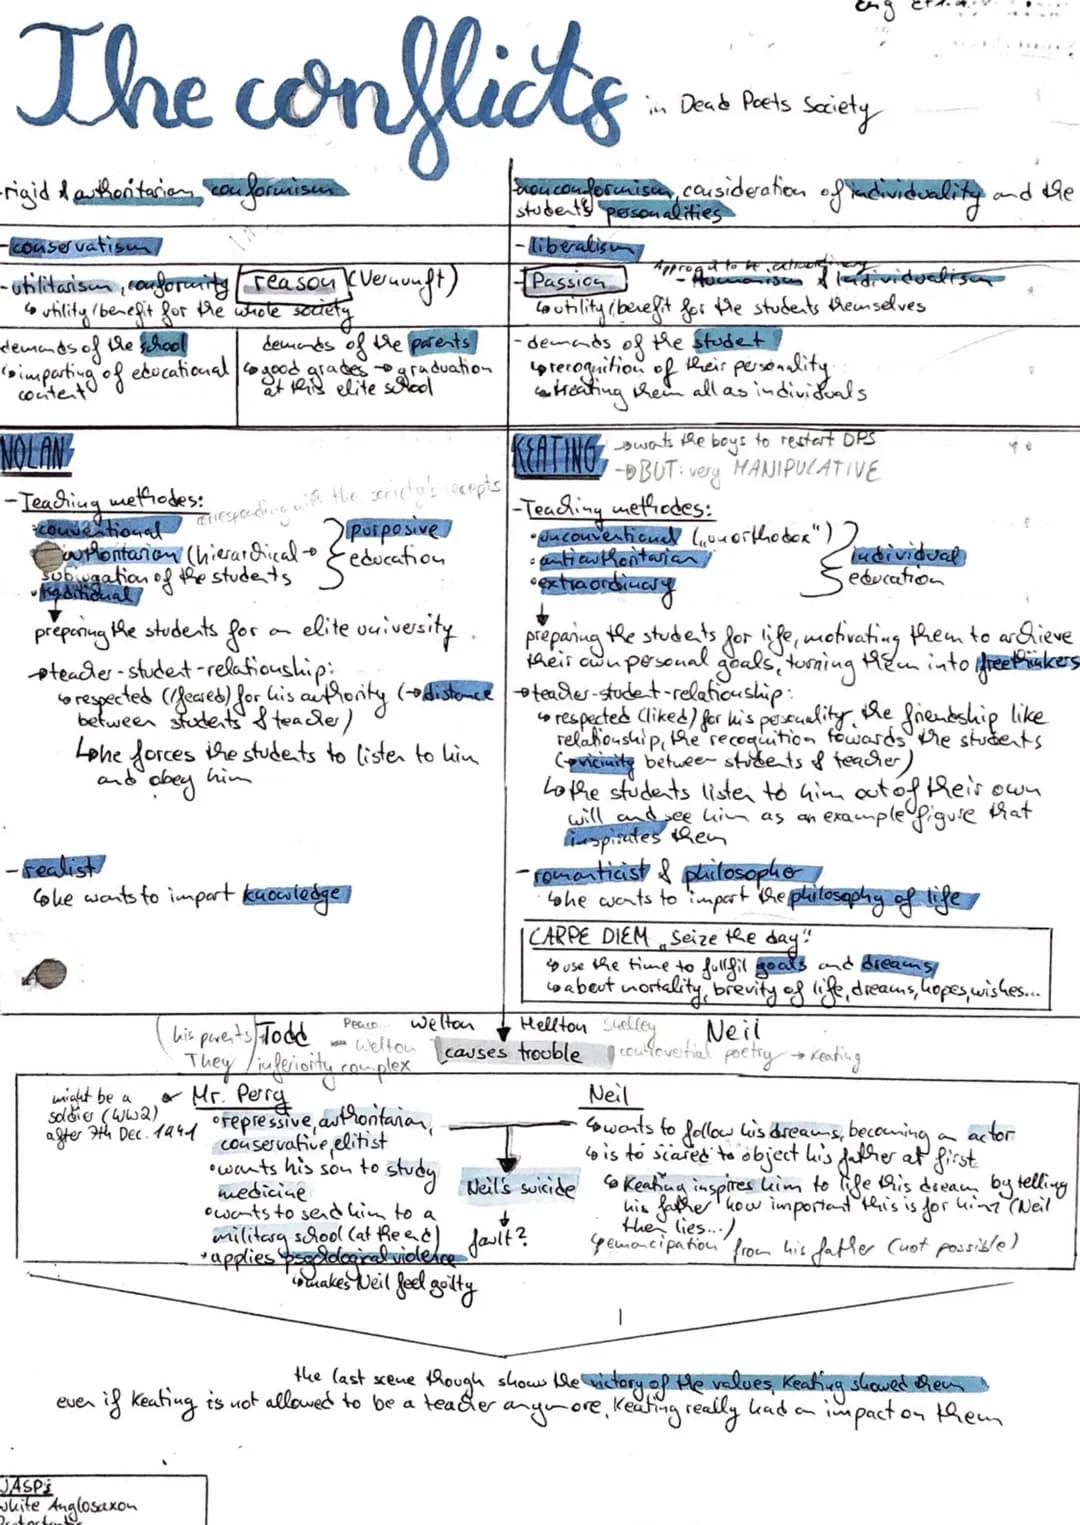 The conflicts in Dead Poets Society
-rigid & authoritarian conformism
nonconformism, consideration of individuality and the
students' personalities
-conservatism
-liberalism
-utilitarism, conformity reason (Vernunft)
↳ utility/benefit for the whole society
Passion - Humanism & Individualism
↳ utility/benefit for the students themselves
demands of the school
↳ imparting of educational
content
demands of the parents
↳ good grades → graduation
at this elite school
- demands of the student
↳ recognition of their personality
↳ treating them all as individuals
NOLAN
-Teaching methodes:
corresponding with the society's
•conventional
authoritarian (hierardical →
subjugation of the students
•traditional
purposive
education
preparing the students for an elite university.
→ teacher-student-relationship:
↳ respected ((feared) for his authority (→ distance
between students & teacher)
↳ he forces the students to listen to him
and obey him
- realist
↳ he wants to impart knowledge
KEATING → wants the boys to restart DPS
→ BUT: very MANIPULATIVE
-Teaching methodes:
•unconventional („unorthodox")
•antiauthoritarian
•extraordinary
individual
education
preparing the students for life, motivating them to archieve
their own personal goals, turning them into freethinkers
→ teacher-student-relationship:
↳ respected (liked) for his personality, the friendship like
relationship, the recognition towards the students
(→ vicinity between students & teacher)
↳ the students listen to him out of their own
will and see him as an example figure that
inspirates them
- romanticist & philosopher
↳ he wants to impart the philosophy of life
CARPE DIEM „Seize the day"!
↳ use the time to fullfil goals and dreams
↳ about mortality, brevity of life, dreams, hopes, wishes...
(his parents) Todd Welton Hellton Shelley Neil
They / inferiority complex Welton causes trouble controvertial poetry → Keating
might be a
soldier (WW2)
after 7th Dec. 1941
Mr. Perry
•repressive, authoritarian,
conservative, elitist
•wants his son to study
medicine
•wants to send him to a
military school (at the end)
•applies psychological violence
↳ makes Neil feel guilty
Neil's suicide
↓
fault?
Neil
↳ wants to follow his dreams, becoming an actor
↳ is to scared to object his father at first
↳ Keating inspires him to life this dream by telling
his father how important this is for him? (Neil
then lies...)
↳ emancipation from his father (not possible)
the last scene though shows the victory of the values, Keating showed them
even if Keating is not allowed to be a teacher anymore, Keating really had an impact on them
White Anglosaxon